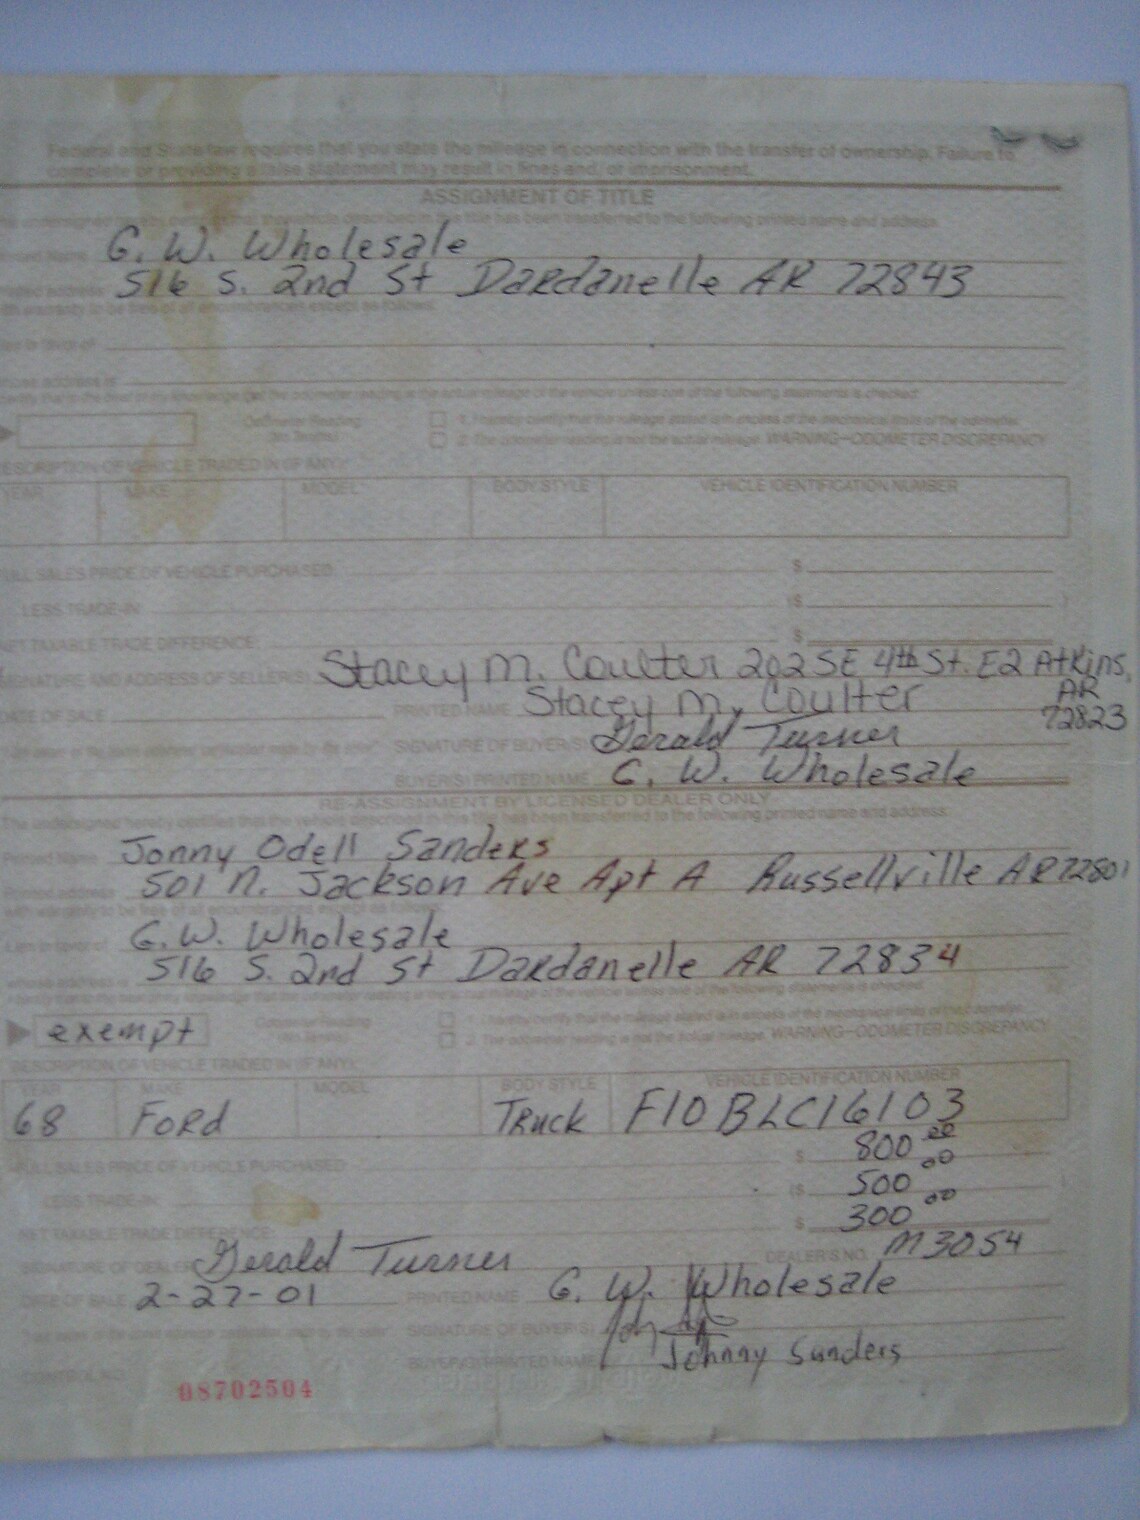 Federal and State law requires that you state the mileage in connection with the transfer of ownership. Failure to
complete or providing a false statement may result in fines and/or imprisonment.
ASSIGNMENT OF TITLE
undersigned hereby certifies that the vehicle described in this title has been transferred to the following printed name and address.
Name G. W. Wholesale
address 516 S. 2nd St Dardanelle AR 72843
with warranty to be free of all encumbrances except as follows:
in favor of
whose address is
certify that to the best of my knowledge that the odometer reading is the actual mileage of the vehicle unless one of the following statements is checked:
Odometer Reading 1. I hereby certify that the mileage stated is in excess of the mechanical limits of the odometer.
(No Tenths) 2. The odometer reading is not the actual mileage. WARNING-ODOMETER DISCREPANCY
DESCRIPTION OF VEHICLE TRADED IN (IF ANY):
YEAR MAKE MODEL BODY STYLE VEHICLE IDENTIFICATION NUMBER
FULL SALES PRICE OF VEHICLE PURCHASED: $
LESS TRADE-IN: ($ )
NET TAXABLE TRADE DIFFERENCE: $
SIGNATURE AND ADDRESS OF SELLER(S) Stacey M. Coulter 202 SE 4th St. E2 Atkins,
AR
72823
DATE OF SALE PRINTED NAME Stacey M. Coulter
SIGNATURE OF BUYER(S) Gerald Turner
BUYER(S) PRINTED NAME G. W. Wholesale
RE-ASSIGNMENT BY LICENSED DEALER ONLY
The undersigned hereby certifies that the vehicle described in this title has been transferred to the following printed name and address:
Printed Name Jonny Odell Sanders
Printed address 501 N. Jackson Ave Apt A Russellville AR 72801
with warranty to be free of all encumbrances except as follows:
Lien in favor of G.W. Wholesale
whose address is 516 S. 2nd St Dardanelle AR 72834
I certify that to the best of my knowledge that the odometer reading is the actual mileage of the vehicle unless one of the following statements is checked:
exempt Odometer Reading 1. I hereby certify that the mileage stated is in excess of the mechanical limits of the odometer.
(No Tenths) 2. The odometer reading is not the actual mileage. WARNING-ODOMETER DISCREPANCY
DESCRIPTION OF VEHICLE TRADED IN (IF ANY):
YEAR MAKE MODEL BODY STYLE VEHICLE IDENTIFICATION NUMBER
68 Ford Truck F10BLC16103
FULL SALES PRICE OF VEHICLE PURCHASED: $ 800 00
LESS TRADE-IN: ($ 500 00 )
NET TAXABLE TRADE DIFFERENCE: $ 300 00
SIGNATURE OF DEALER Gerald Turner DEALER'S NO. M3054
DATE OF SALE 2-27-01 PRINTED NAME G. W. Wholesale
SIGNATURE OF BUYER(S)
BUYER(S) PRINTED NAME Johnny Sanders
CONTROL NO. 08702504